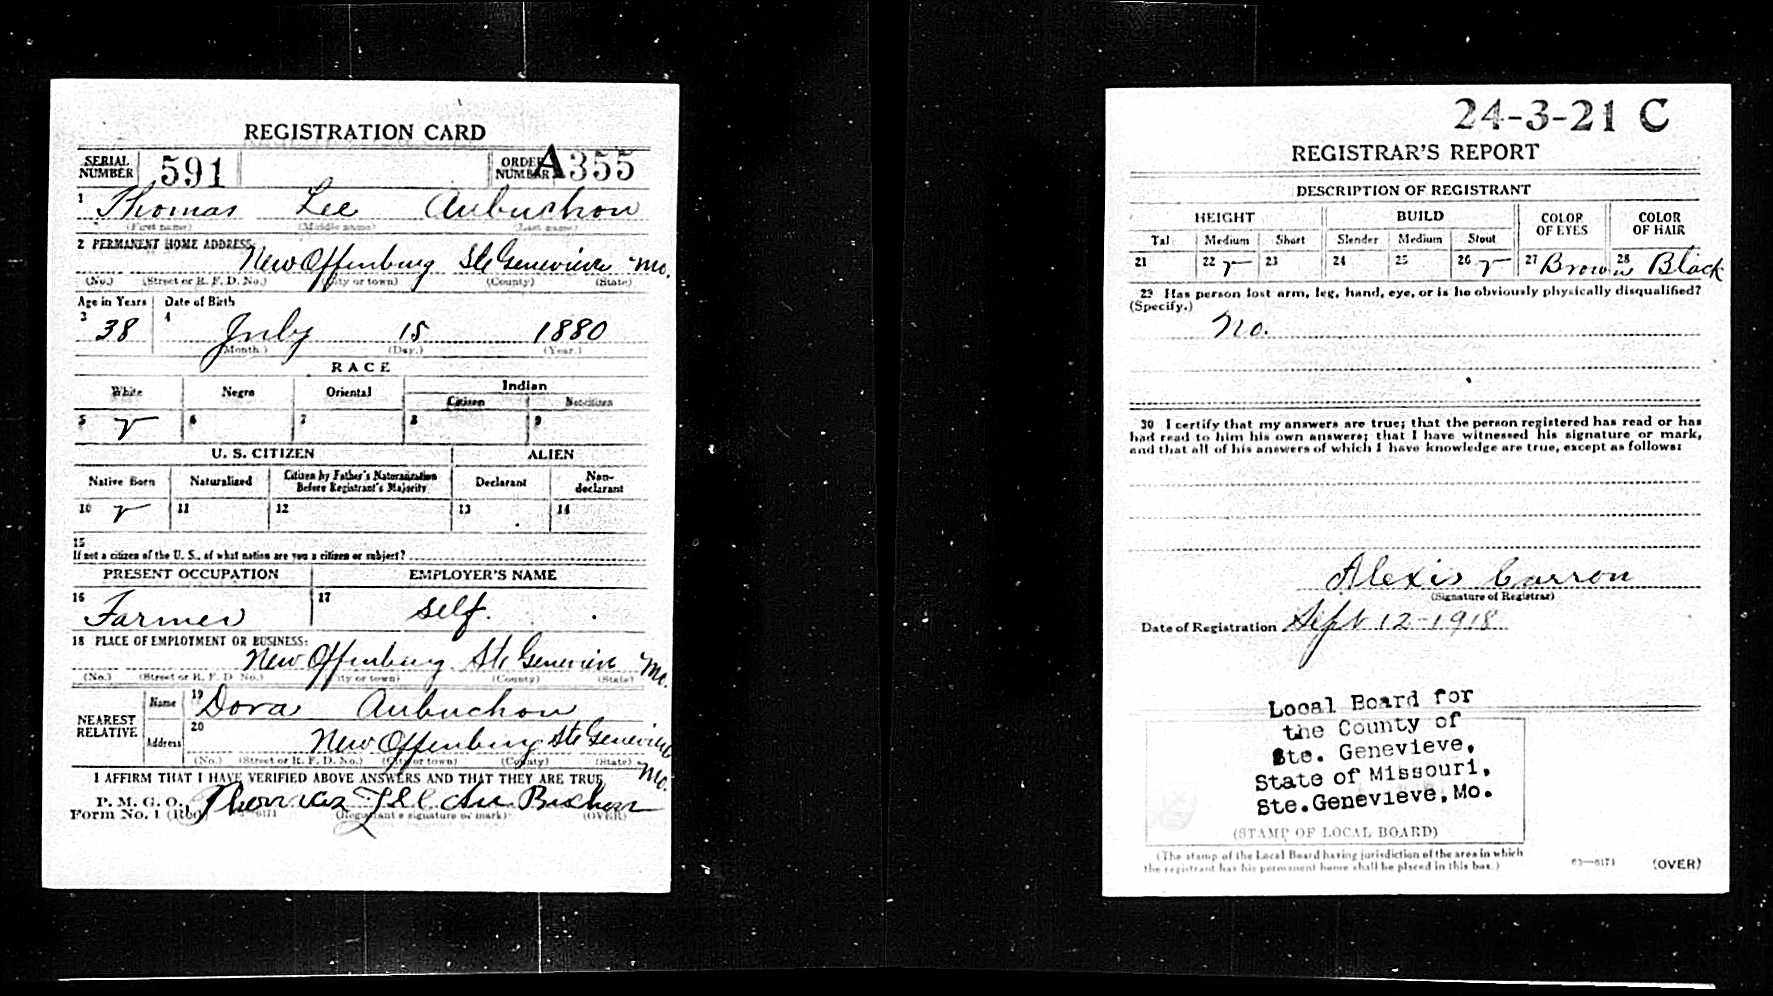 REGISTRATION CARD
SERIAL NUMBER 591 ORDER NUMBER A355
1 Thomas Lee Aubuchon
(First name) (Middle name) (Last name)
2 PERMANENT HOME ADDRESS:
New Offenburg Ste Genevieve Mo.
(No.) (Street or R. F. D. No.) (City or town) (County) (State)
Age in Years Date of Birth
3 38 4 July 15 1880
(Month.) (Day.) (Year.)
RACE
White Negro Oriental Indian
Citizen Noncitizen
5 ✓ 6 7 8 9
U. S. CITIZEN ALIEN
Native Born Naturalized Citizen by Father's Naturalization Before Registrant's Majority Declarant Non-declarant
10 ✓ 11 12 13 14
15
If not a citizen of the U. S., of what nation are you a citizen or subject?
PRESENT OCCUPATION EMPLOYER'S NAME
16 Farmer 17 self.
18 PLACE OF EMPLOYMENT OR BUSINESS:
New Offenburg Ste Genevieve Mo.
(No.) (Street or R. F. D. No.) (City or town) (County) (State)
NEAREST RELATIVE Name 19 Dora Aubuchon
Address 20 New Offenburg Ste Genevieve Mo.
(No.) (Street or R. F. D. No.) (City or town) (County) (State)
I AFFIRM THAT I HAVE VERIFIED ABOVE ANSWERS AND THAT THEY ARE TRUE
P. M. G. O.
Form No. 1 (Red) Thomas Lee Au Buchon
(Registrant's signature or mark) (OVER)
24-3-21 C
REGISTRAR'S REPORT
DESCRIPTION OF REGISTRANT
HEIGHT BUILD COLOR OF EYES COLOR OF HAIR
Tall Medium Short Slender Medium Stout
21 22 ✓ 23 24 25 26 ✓ 27 Brown 28 Black
29 Has person lost arm, leg, hand, eye, or is he obviously physically disqualified?
(Specify.)
No.
30 I certify that my answers are true; that the person registered has read or has
had read to him his own answers; that I have witnessed his signature or mark,
and that all of his answers of which I have knowledge are true, except as follows:
Alexis Carron
(Signature of Registrar)
Date of Registration Sept 12-1918
Local Board for
the County of
Ste. Genevieve,
State of Missouri,
Ste.Genevieve,Mo.
(STAMP OF LOCAL BOARD)
(The stamp of the Local Board having jurisdiction of the area in which
the registrant has his permanent home shall be placed in this box.)
03—6171 (OVER)